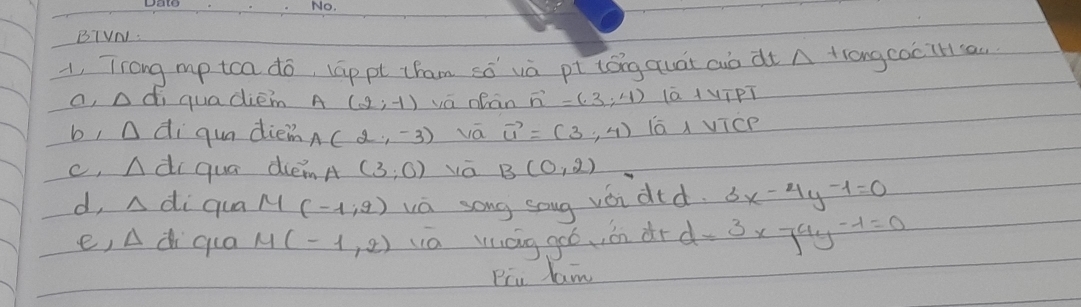 Date No.
BTVN:
1, Trong mp tọa độ, lập pt tham số và pt tổng quát của đt Δ trong các TH sau:
a, Δ đi qua điểm A (2;-1) và nhận n⃗ = (3;4) là 1 VTPT
b, Δ đi qua điểm A (2;-3) và u⃗ = (3;4) là 1 VTCP
c, Δ đi qua điểm A (3;0) và B (0,2)
d, Δ đi qua M (-1;2) và song song với đt d: 3x-4y-1=0
e, Δ đi qua M (-1,2) và vuông góc với đt d = 3x-4y-1=0
làm